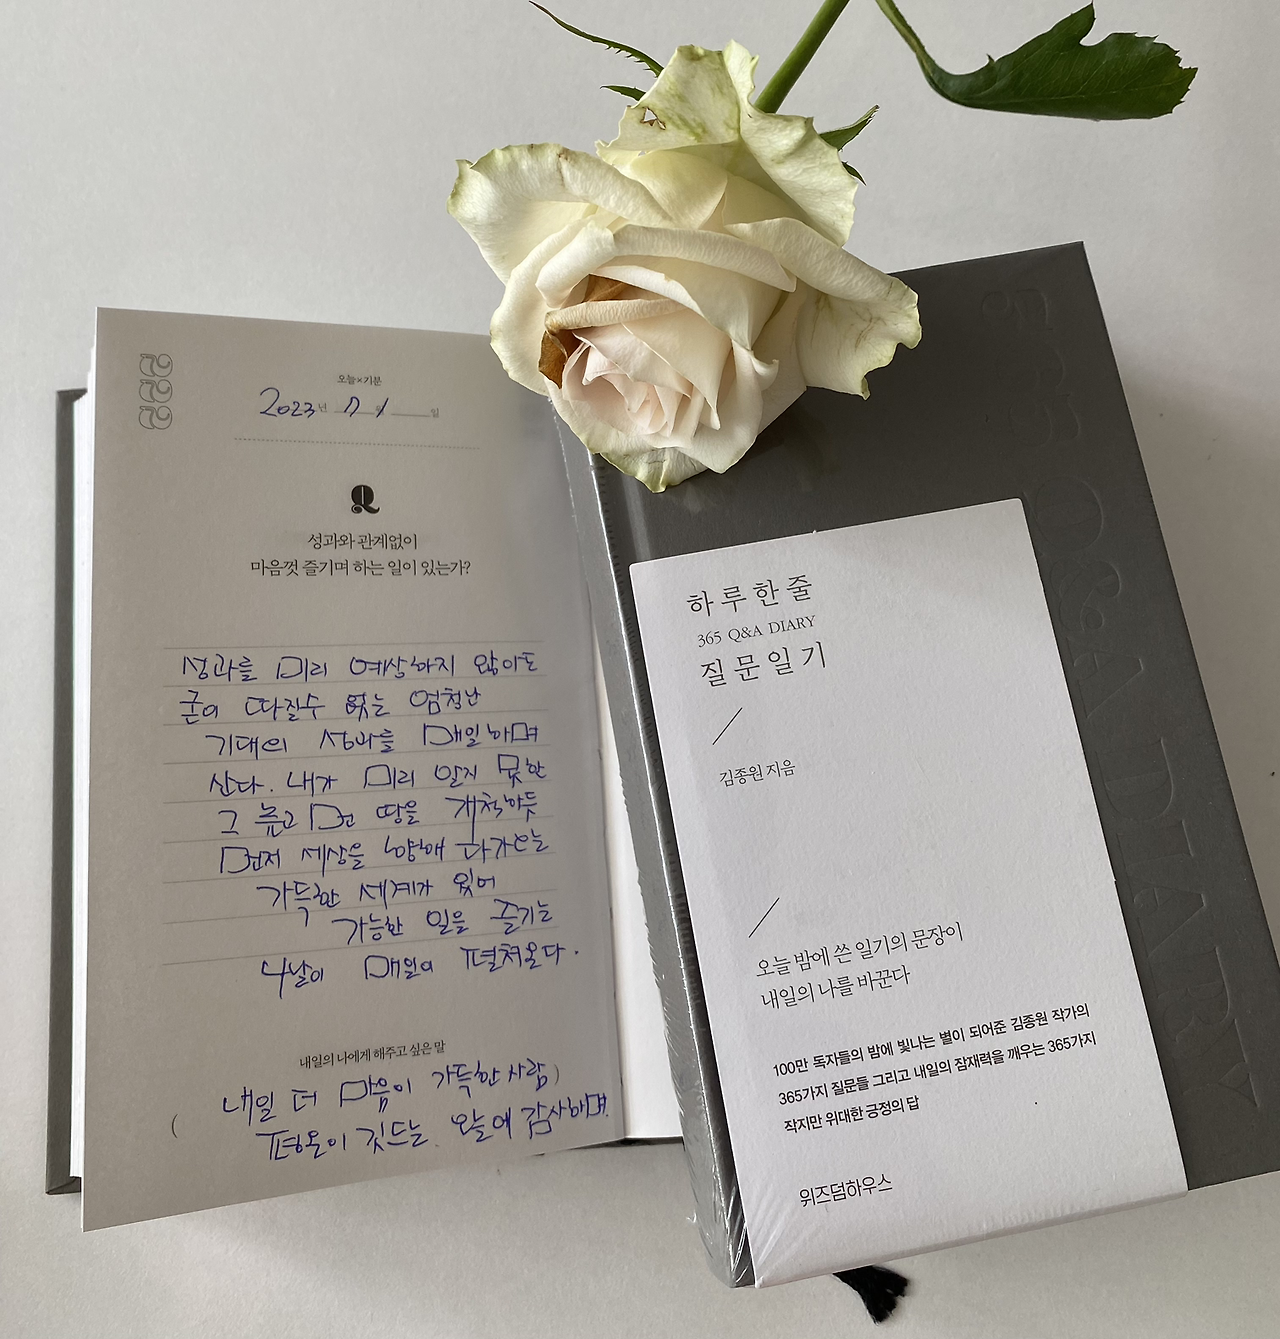 222
오늘×기분
2023년 7 / 1 일
Q
성과와 관계없이
마음껏 즐기며 하는 일이 있는가?
성과를 미리 예상하지 않아도
굳이 따질수 없는 엄청난
기대의 성과를 매일 하며
산다. 내가 미리 알지 못한
그 높고 먼 땅을 개척하듯
먼저 세상을 향해 다가오는
가득한 세계가 있어
가능한 일을 즐기는
나날이 매일이 펼쳐온다.
내일의 나에게 해주고 싶은 말
내일 더 마음이 가득한 사람)
( 평온이 깃드는 오늘에 감사하며.
365 Q&A DIARY
하루 한 줄
365 Q&A DIARY
질문 일기
김종원 지음
오늘 밤에 쓴 일기의 문장이
내일의 나를 바꾼다
100만 독자들의 밤에 빛나는 별이 되어준 김종원 작가의
365가지 질문들 그리고 내일의 잠재력을 깨우는 365가지
작지만 위대한 긍정의 답
위즈덤하우스